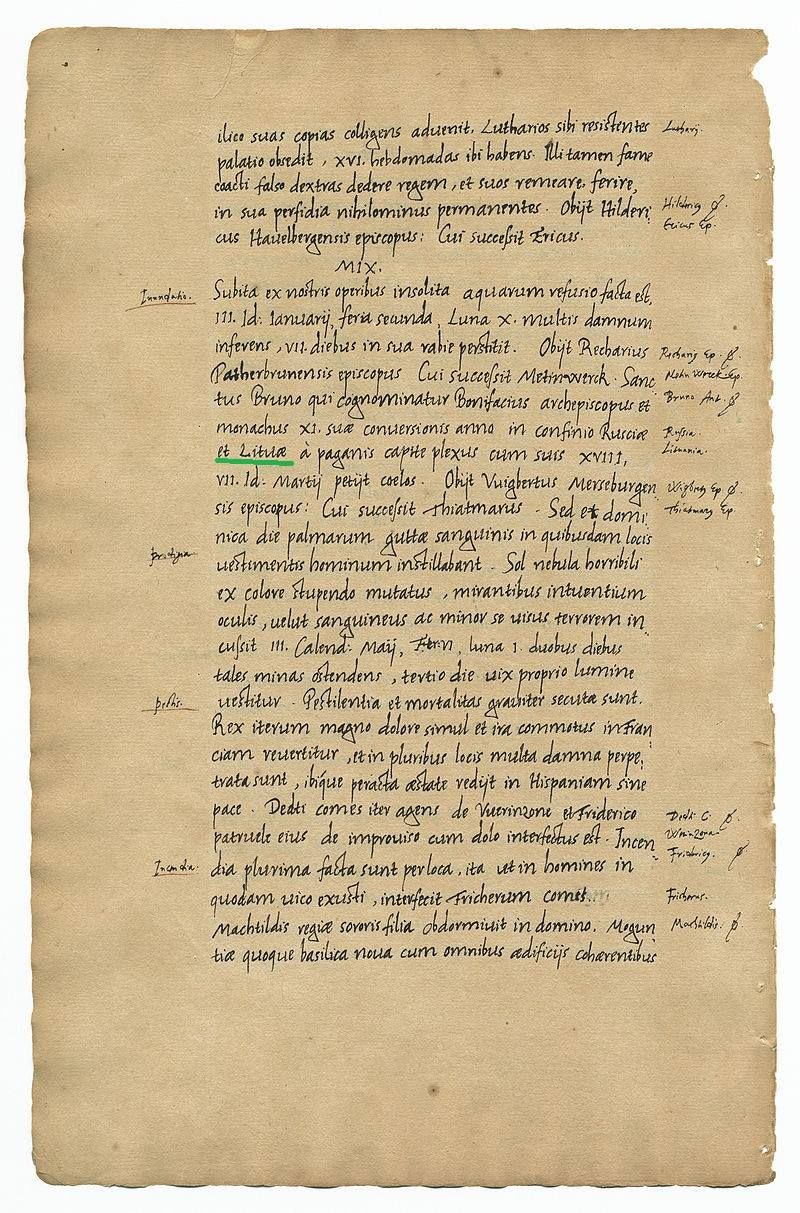 ilico suas copias colligens aduenit. Lutharios sibi resistentes
Lutharij.
palatio obsedit, XVI. hebdomadas ibi habens. Illi tamen fame
coacti falso dextras dedere regem, et suos remeare, ferire,
in sua perfidia nihilominus permanentes. Obijt Hilderi:
Hildricg
cus Hauelbergensis episcopus: Cui successit Ericus.
Ericus Ep.
MIX.
Inundatio.
Subita ex nostris operibus insolita aquarum refusio facta est,
III. Id: Ianuarij, feria secunda, Luna X. multis damnum
inferens, VII. diebus in sua rabie perstitit. Obijt Recharius
Recharig Ep.
Patherbrunensis episcopus Cui successit Metinwerck. Sanc
Ep.
tus Bruno qui cognominatur Bonifacius archepiscopus et
Bruno
monachus XI. suæ conuersionis anno in confinio Rusciæ
Russia.
et Lituæ à paganis capite plexus cum suis XVIII,
Lituania.
VII. Id: Martij petijt coelos. Obijt Vuigbertus Merseburgen
Wigbertg Ep
sis episcopus: Cui successit Thiatmarus. Sed et domi
Thiatmarg Ep.
nica die palmarum guttæ sanguinis in quibusdam locis
prodigia
uestimentis hominum instillabant. Sol nebula horribili
ex colore stupendo mutatus, mirantibus intuentium
oculis, uelut sanguineus ac minor se uisus terrorem in
cussit III. Calend: Maij, luna I. duobus diebus
tales minas ostendens, tertio die uix proprio lumine
pestis.
uestitur. Pestilentia et mortalitas grauiter secuta sunt.
Rex iterum magno dolore simul et ira commotus in Fran
ciam reuertitur, et in pluribus locis multa damna perpe:
trata sunt, ibique peracta æstate redijt in Hispaniam sine
pace. Dedti comes iter agens de Vuerinzone et Friderico
Dedti C.
patruele eius de improuiso cum dolo interfectus est. Incen
Werinzona
Fridricg.
Incendia.
dia plurima facta sunt per loca, ita ut in homines in
quodam uico exusti, interfecit Fricherum comes.
Fricherus.
Machtildis regiæ sororis filia obdormiuit in domino. Mogun
Machtildis.
tiæ quoque basilica noua cum omnibus ædificijs cohærentibus